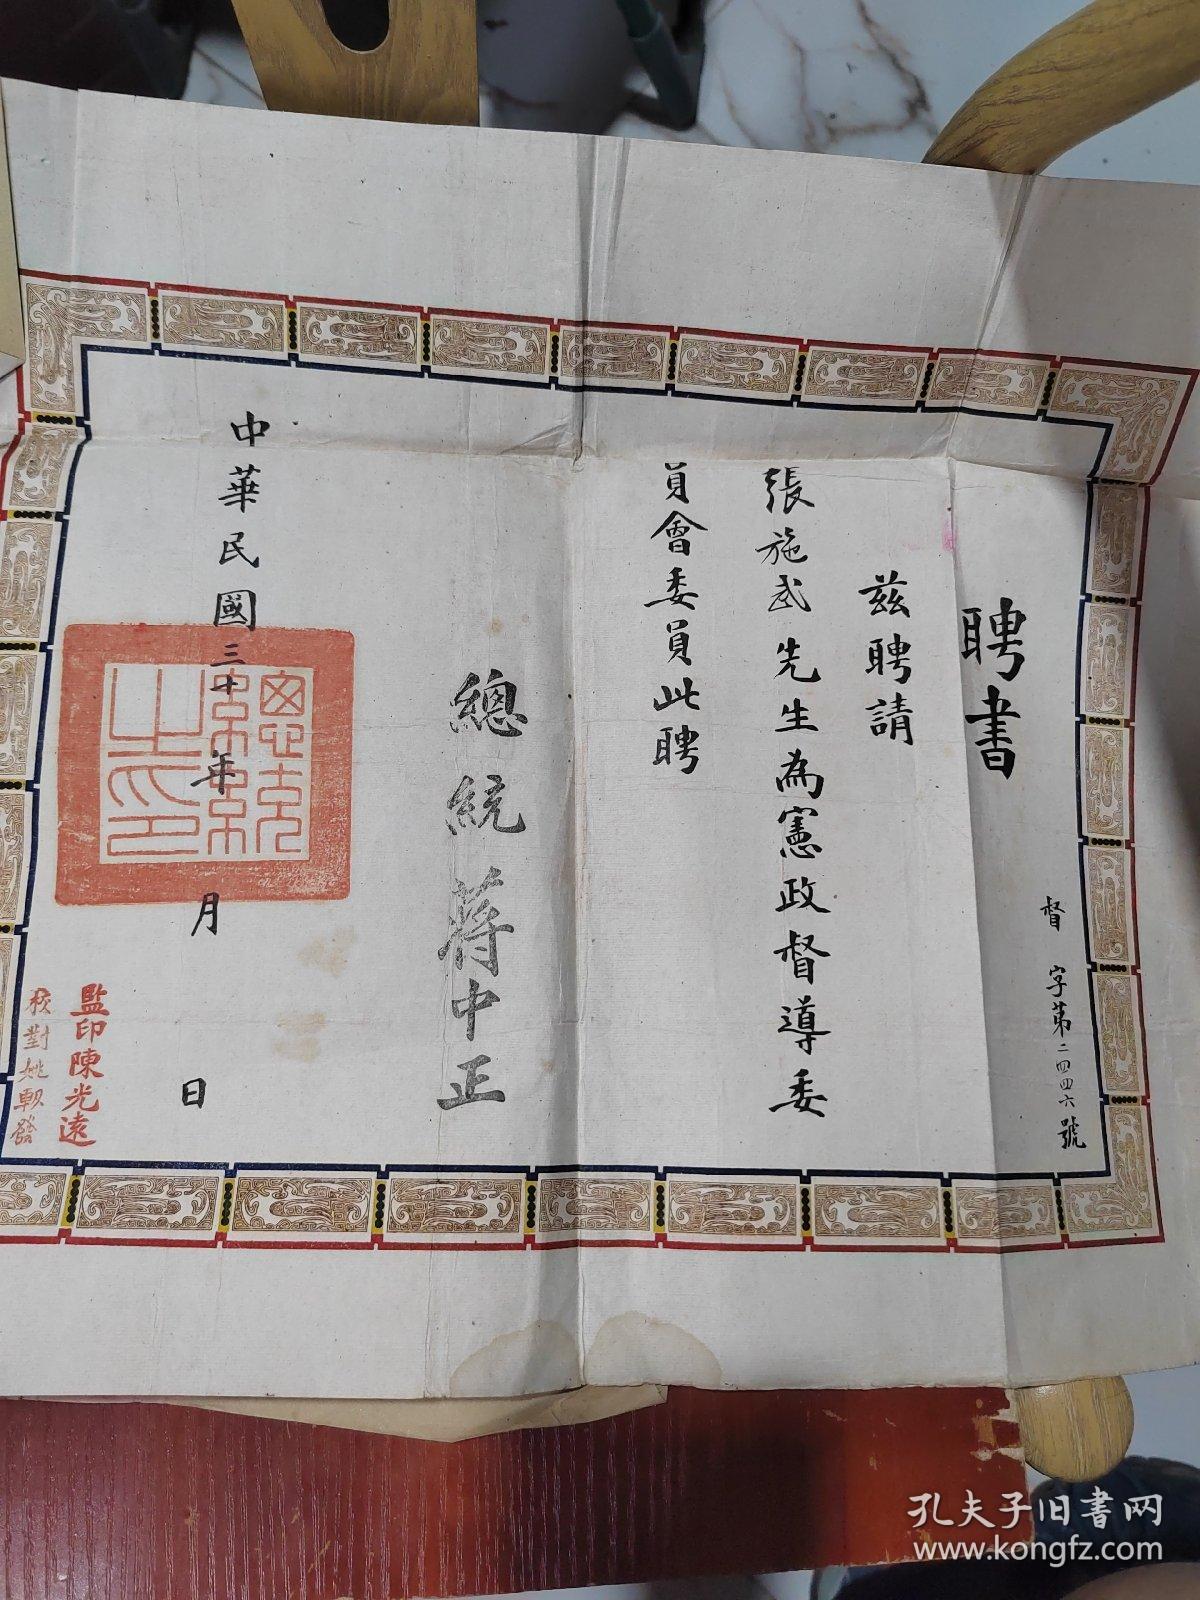 聘書
督字第二四四六號
茲聘請
張施武先生為憲政督導委
員會委員此聘
總統蔣中正
中華民國三十年月日
總統之印
監印陳光遠
校對姚軔發
孔夫子旧书网
www.kongfz.com